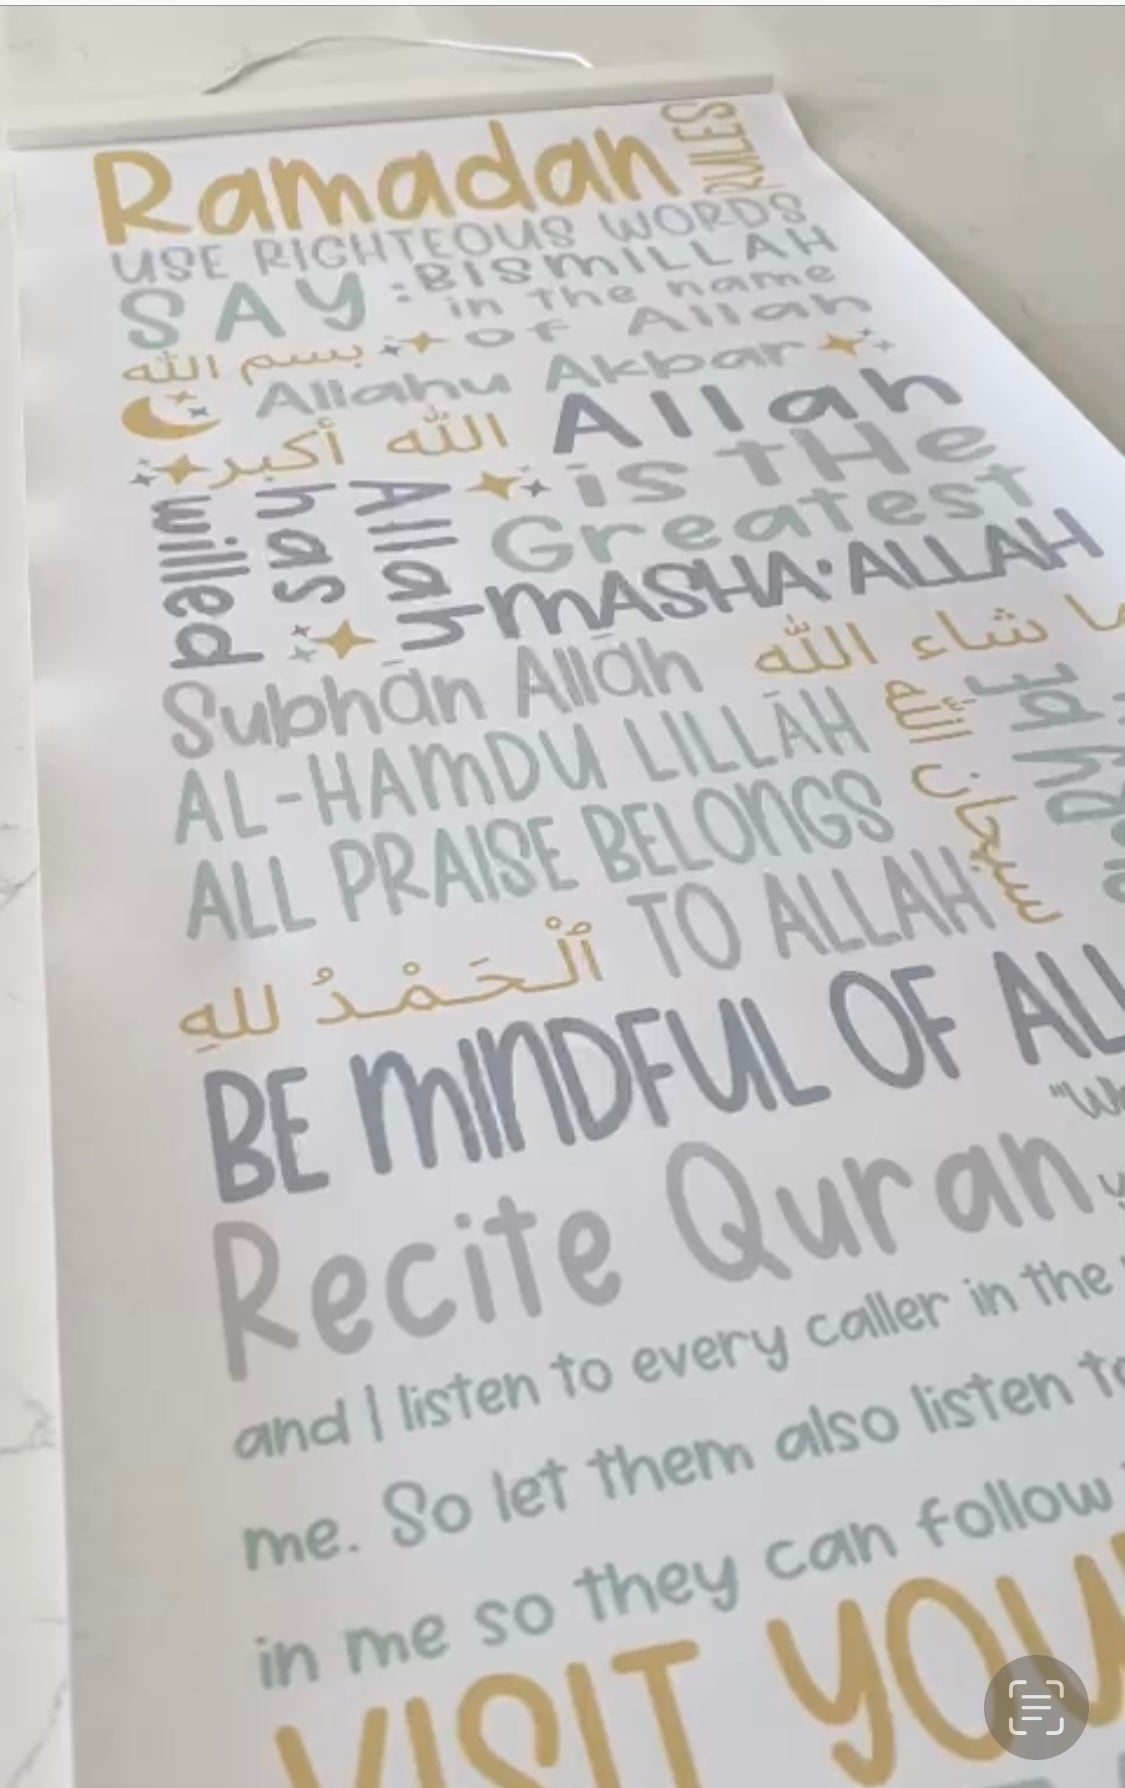 Ramadan RULES
USE RIGHTEOUS WORDS
SAY: BISMILLAH
in the name
of Allah
بسم الله
Allahu Akbar
الله أكبر
Allah
is tHe
Greatest
Allah
has
willed
MASHA'ALLAH
ما شاء الله
Subhān Allāh
سبحان الله
AL-HAMDU LILLĀH
ALL PRAISE BELONGS
TO ALLAH
ٱلْحَمْدُ للهِ
BE MINDFUL OF
Recite Quran
and I listen to every caller in the
me. So let them also listen
in me so they can follow
VISIT